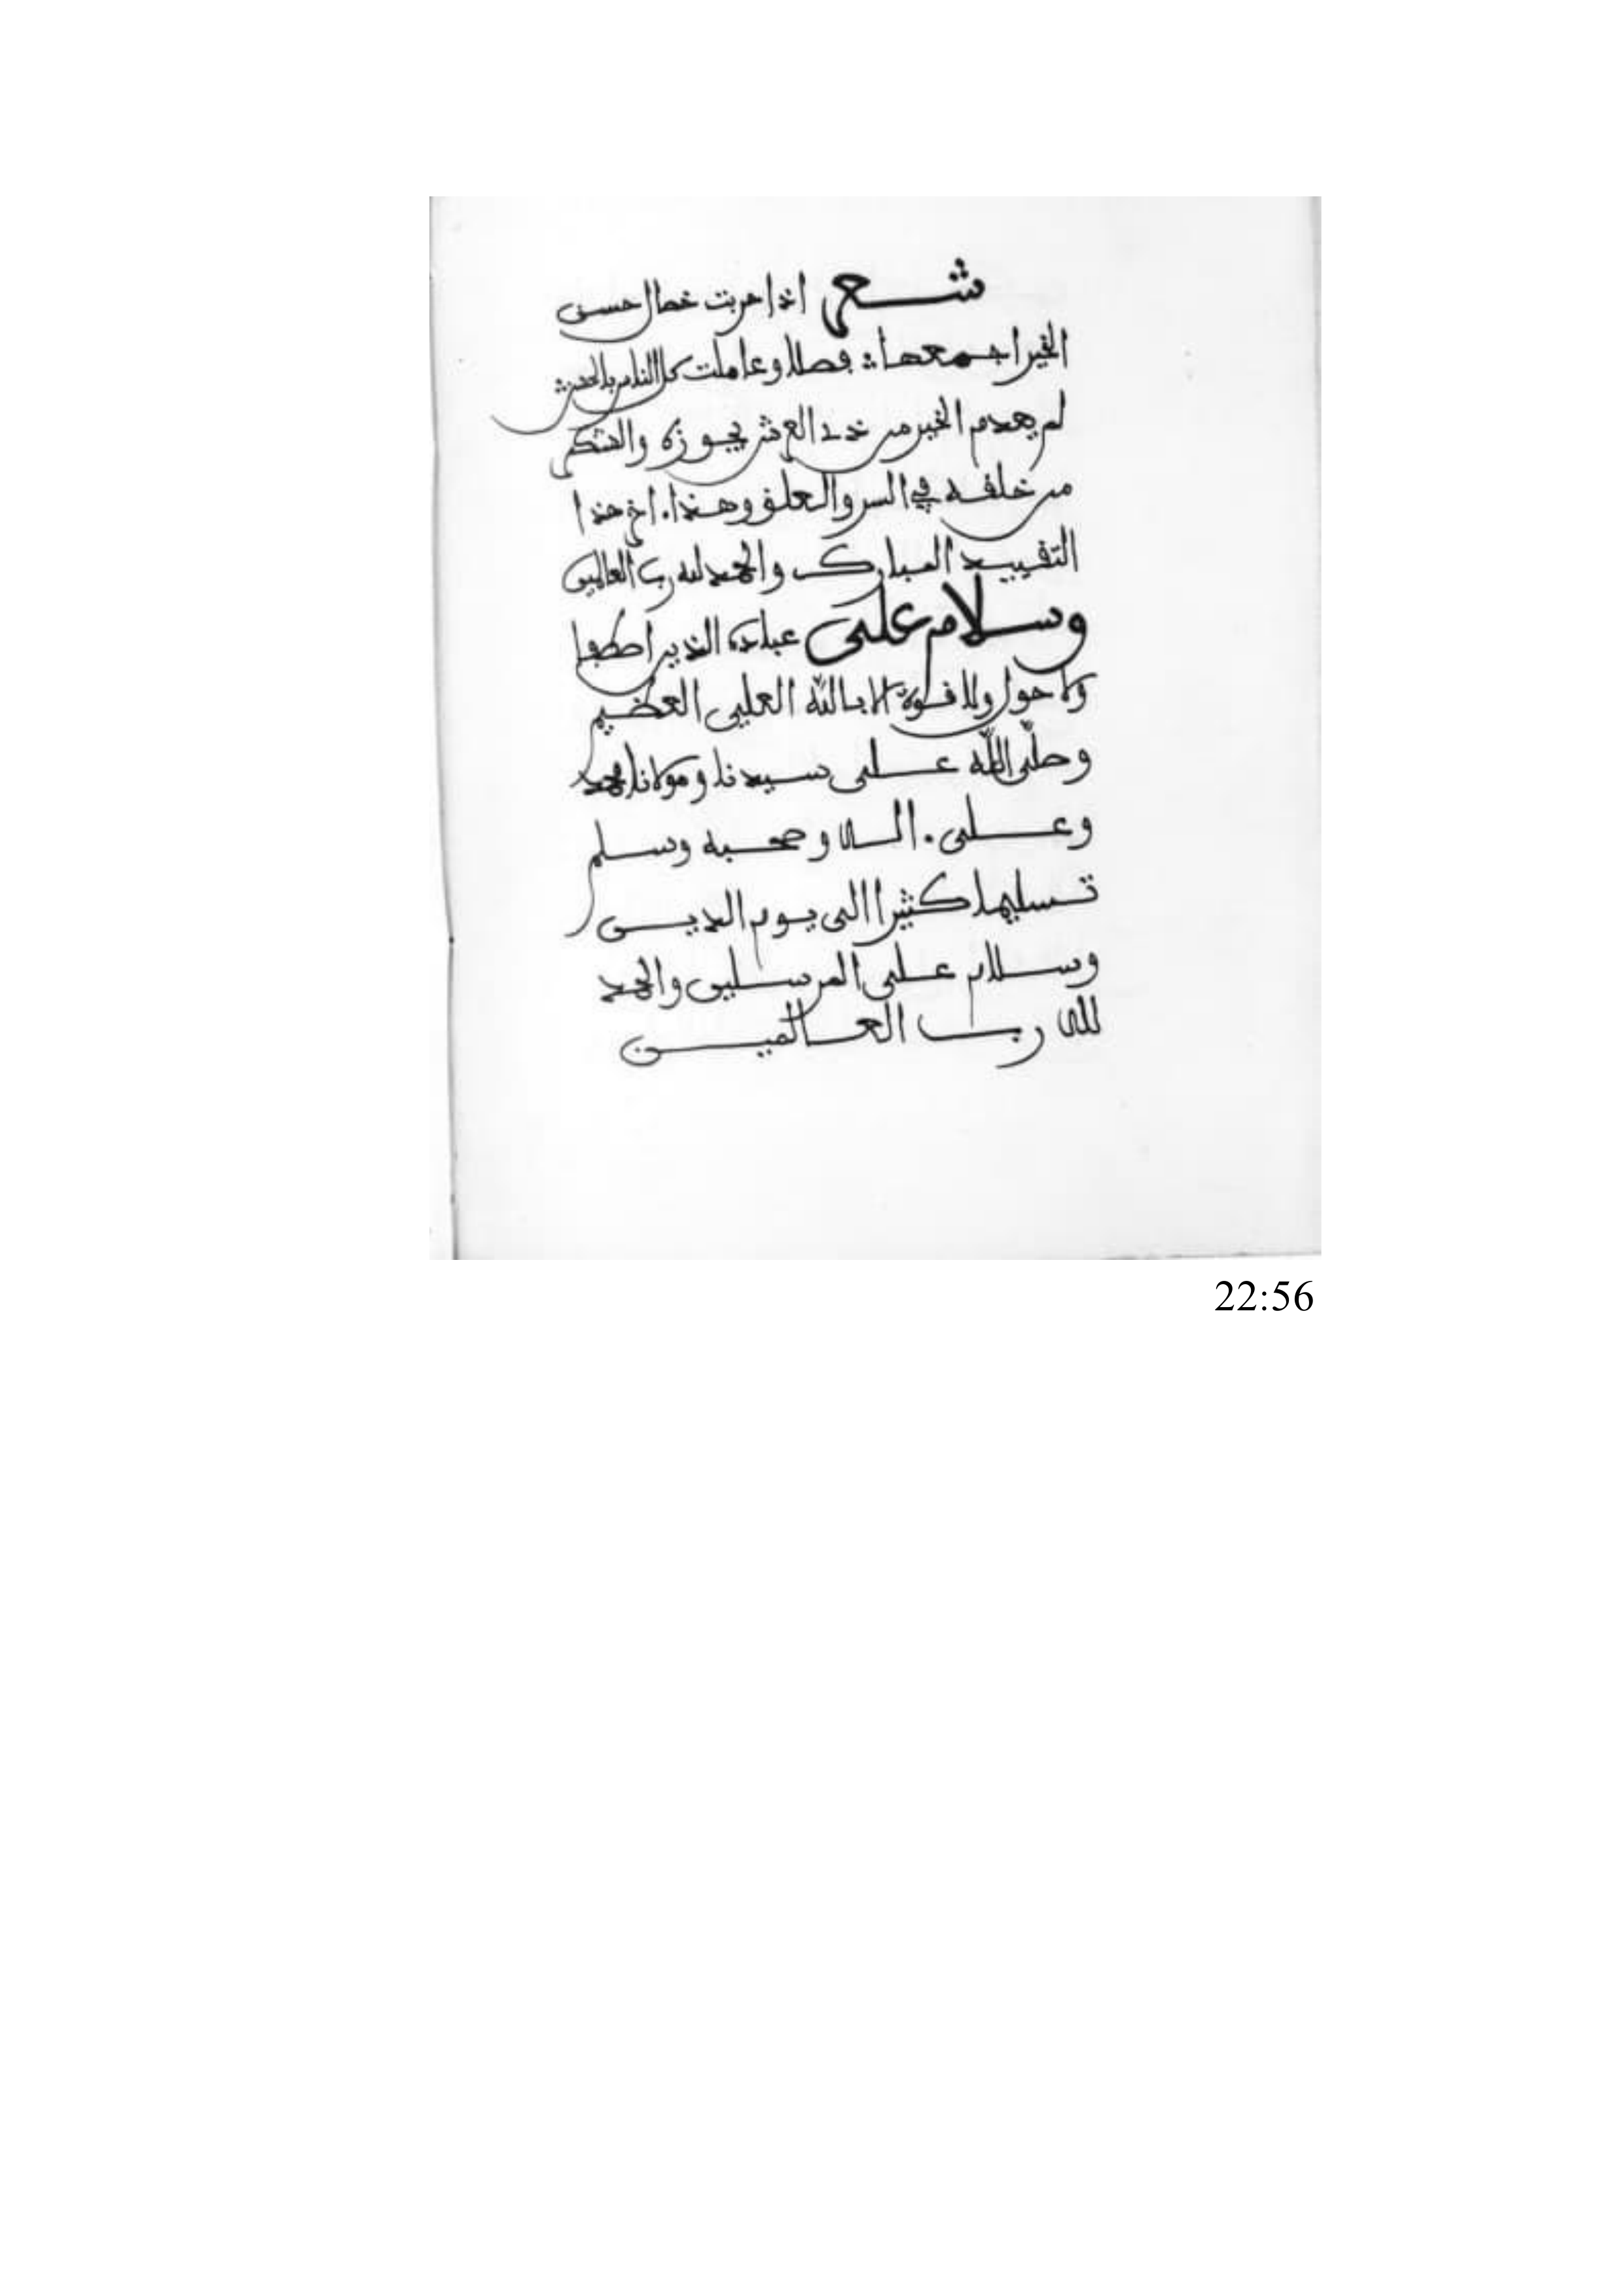 شعر اذا حربت خصال حسن
الخير اجمعها فصلا وعاملت كل الناس بالحسن
لم يعدم الخير من خدد العرش يحوزه والشكر
من خلفه في السر والعلن وهذا. اخر هذا
التقييد المبارك والحمد لله رب العالمين
وسلام على عباده الذين اصطفا
ولا حول ولا قوة الا بالله العلي العظيم
وصلى الله على سيدنا ومولانا محمد
وعلى. اله وصحبه وسلم
تسليما كثيرا الى يوم الدين
وسلام على المرسلين والحمد
لله رب العالمين
22:56